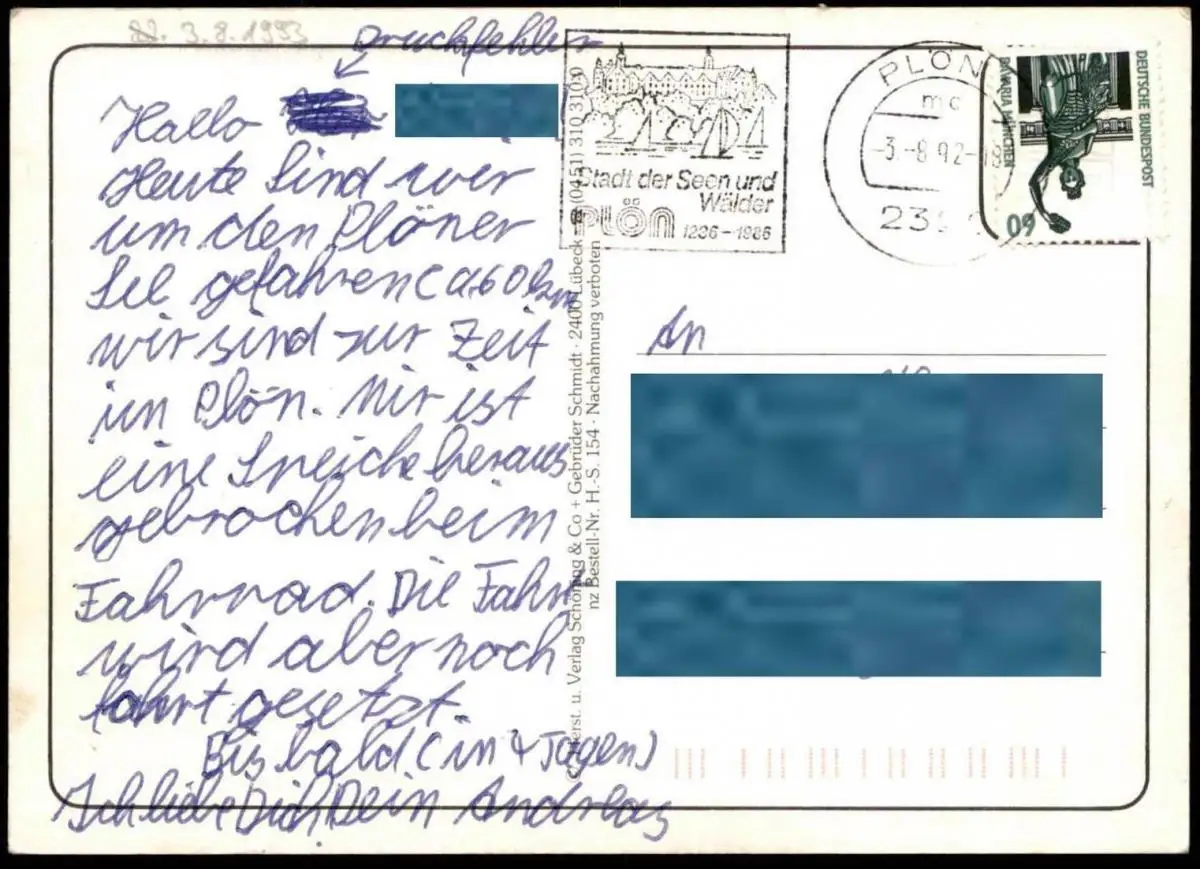 3.8.1993
Druckfehler
Hallo
Heute sind wir
um den Plöner
See gefahren (ca 60 km
wir sind zur Zeit
in Plön. Mir ist
eine Speiche heraus
gebrochen beim
Fahrrad. Die Fahrt
wird aber noch
fohrt gesetzt.
Bis bald (in 4 Tagen)
Ich liebe Dich! Dein Andreas
© Herst. u. Verlag Schöning & Co + Gebrüder Schmidt · 2400 Lübeck (0451) 310 310
nz Bestell-Nr. H.-S. 154 · Nachahmung verboten
Stadt der Seen und
Wälder
PLÖN 1236-1986
PLÖN
-3.-8.92-18
23
DEUTSCHE BUNDESPOST
BAVARIA MÜNCHEN
60
An